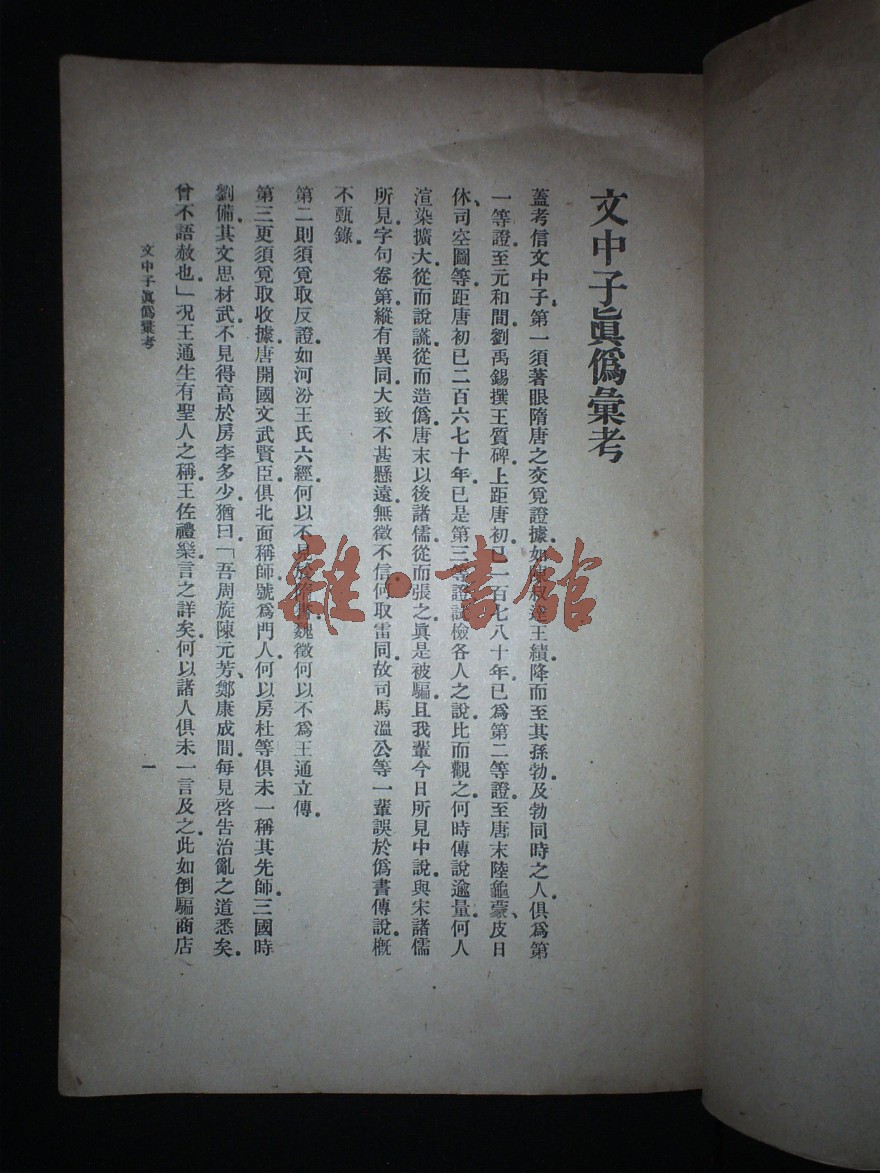 文中子眞僞彙考
蓋考信文中子。第一須著眼隋唐之交覓證據。如陳叔達王績。降而至其孫勃。及勃同時之人。俱爲第
一等證。至元和間。劉禹錫撰王質碑。上距唐初。已一百七八十年。已爲第二等證。至唐末陸龜蒙、皮日
休、司空圖等。距唐初已二百六七十年。已是第三等證。試檢各人之說。比而觀之。何時傳說逾量。何人
渲染擴大。從而說謊。從而造僞。唐末以後諸儒。從而張之。眞是被騙。且我輩今日所見中說。與宋諸儒
所見。字句卷第。縱有異同。大致不甚懸遠。無徵不信。何取雷同。故司馬溫公等一輩誤於僞書傳說。概
不甄錄。
第二則須覓取反證。如河汾王氏六經。何以不見於隋書。魏徵何以不爲王通立傳。
第三更須覓取收據。唐開國文武賢臣。俱北面稱師。號爲門人。何以房杜等俱未一稱其先師。三國時
劉備。其文思材武。不見得高於房李多少。猶曰。「吾周旋陳元芳、鄭康成間。每見啓告治亂之道悉矣。
曾不語赦也。」況王通生有聖人之稱。王佐禮樂。言之詳矣。何以諸人俱未一言及之。此如倒騙商店
文中子眞僞彙考
一
雜·書館